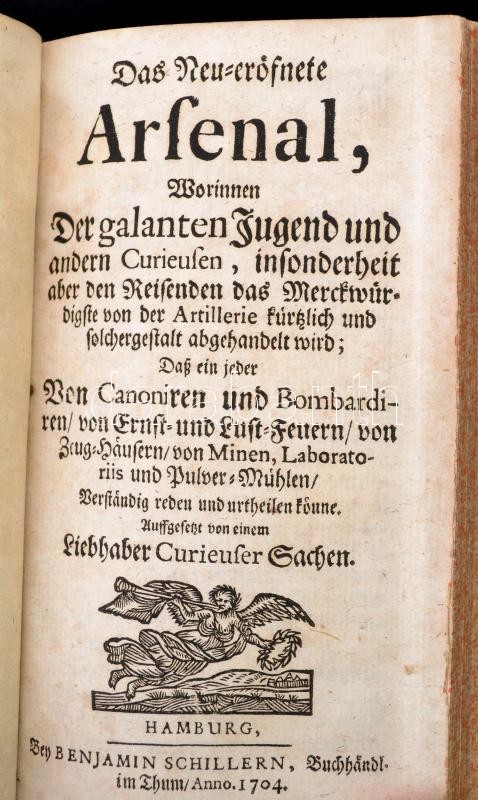 Das Neu-eröfnete
Arſenal,
Worinnen
Der galanten Jugend und
andern Curieuſen, inſonderheit
aber den Reiſenden das Merckwür-
digſte von der Artillerie kürtzlich und
ſolchergeſtalt abgehandelt wird;
Daß ein jeder
Von Canoniren und Bombardi-
ren/ von Ernſt- und Luſt-Feuern/ von
Zeug-Häuſern/ von Minen, Laborato-
riis und Pulver-Mühlen/
Verſtändig reden und urtheilen könne.
Auffgeſetzt von einem
Liebhaber Curieuſer Sachen.
HAMBURG,
Bey BENJAMIN SCHILLERN, Buchhändl.
im Thum/ Anno. 1704.